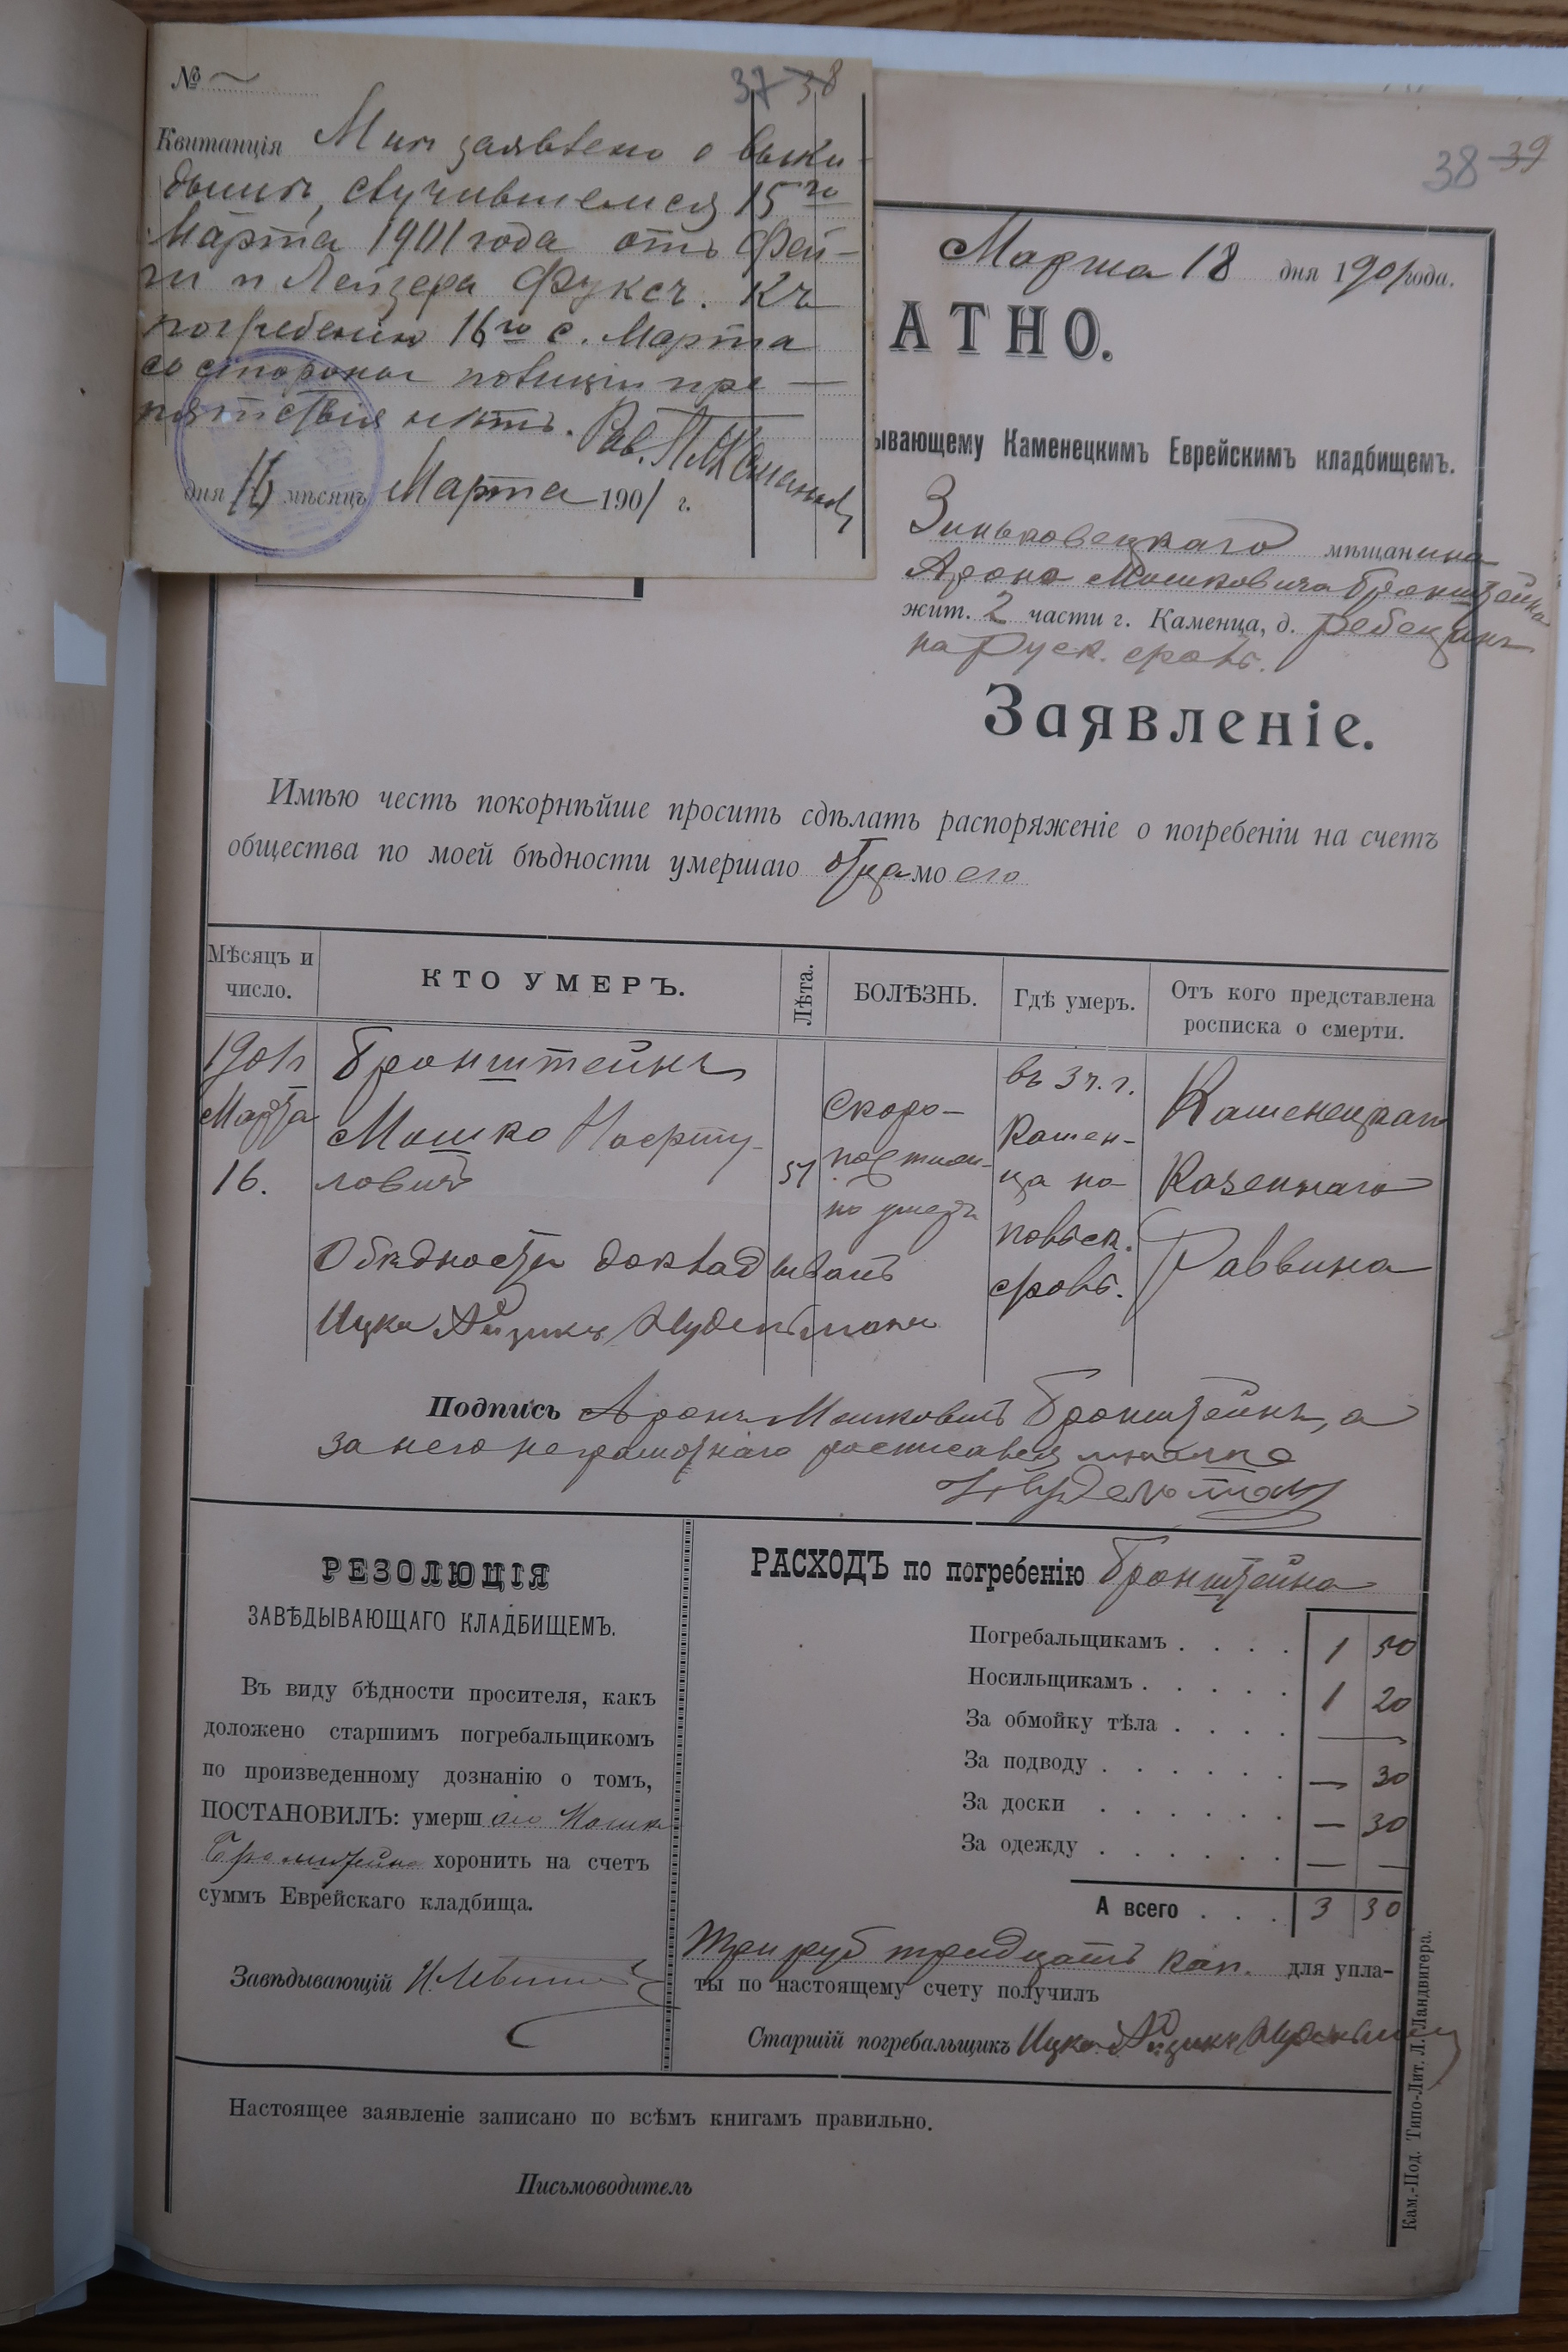 №
37 38
Квитанція Мнѣ заявлено о выки-
дышѣ, случившемся 15го
Марта 1901 года отъ Фей-
ги и Лейзера Фуксъ. Къ
погребенію 16го с. Марта
со стороны полиціи пре-
пятствія нѣтъ. Рав.
дня 16 мѣсяцъ Марта 1901 г.
38 39
Марта 18 дня 1901 года.
АТНО.
ывающему Каменецкимъ Еврейскимъ кладбищемъ.
Зиньковецкаго мѣщанина
Арона Мошковича Бронштейна
жит. 2 части г. Каменца, д.
на Руск. фольв.
Заявленіе.
Имѣю честь покорнѣйше просить сдѣлать распоряженіе о погребеніи на счетъ
общества по моей бѣдности умершаго отца моего
Мѣсяцъ и число.
КТО УМЕРЪ.
Лѣта.
БОЛѢЗНЬ.
Гдѣ умеръ.
Отъ кого представлена росписка о смерти.
1901 г.
Марта
16.
Бронштейнъ
Мошко Нафту-
ловичъ
57
Скоро-
постиж-
но умеръ
въ 3 ч. г.
Камен-
ца на
польск.
фольв.
Каменецкаго
Казеннаго
Раввина
О бѣдности докладывалъ
Ицко Айзикъ Нудельманъ
Подпись Аронъ Мошковичъ Бронштейнъ, а
за него неграмотнаго росписался
Нудельманъ
РЕЗОЛЮЦІЯ
ЗАВѢДЫВАЮЩАГО КЛАДБИЩЕМЪ.
Въ виду бѣдности просителя, какъ
доложено старшимъ погребальщикомъ
по произведенному дознанію о томъ,
ПОСТАНОВИЛЪ: умершаго Мошка
Бронштейна хоронить на счетъ
суммъ Еврейскаго кладбища.
Завѣдывающій
РАСХОДЪ по погребенію Бронштейна
Погребальщикамъ . . . . 1 50
Носильщикамъ . . . . . 1 20
За обмойку тѣла . . . . —
За подводу . . . . . . — 30
За доски . . . . . . — 30
За одежду . . . . . . — —
А всего . . . 3 30
Три руб тридцать коп. для упла-
ты по настоящему счету получилъ
Старшій погребальщикъ Ицко Айзикъ Нудельманъ
Настоящее заявленіе записано по всѣмъ книгамъ правильно.
Письмоводитель
Кам.-Под. Типо-Лит. Л. Ландвигера.